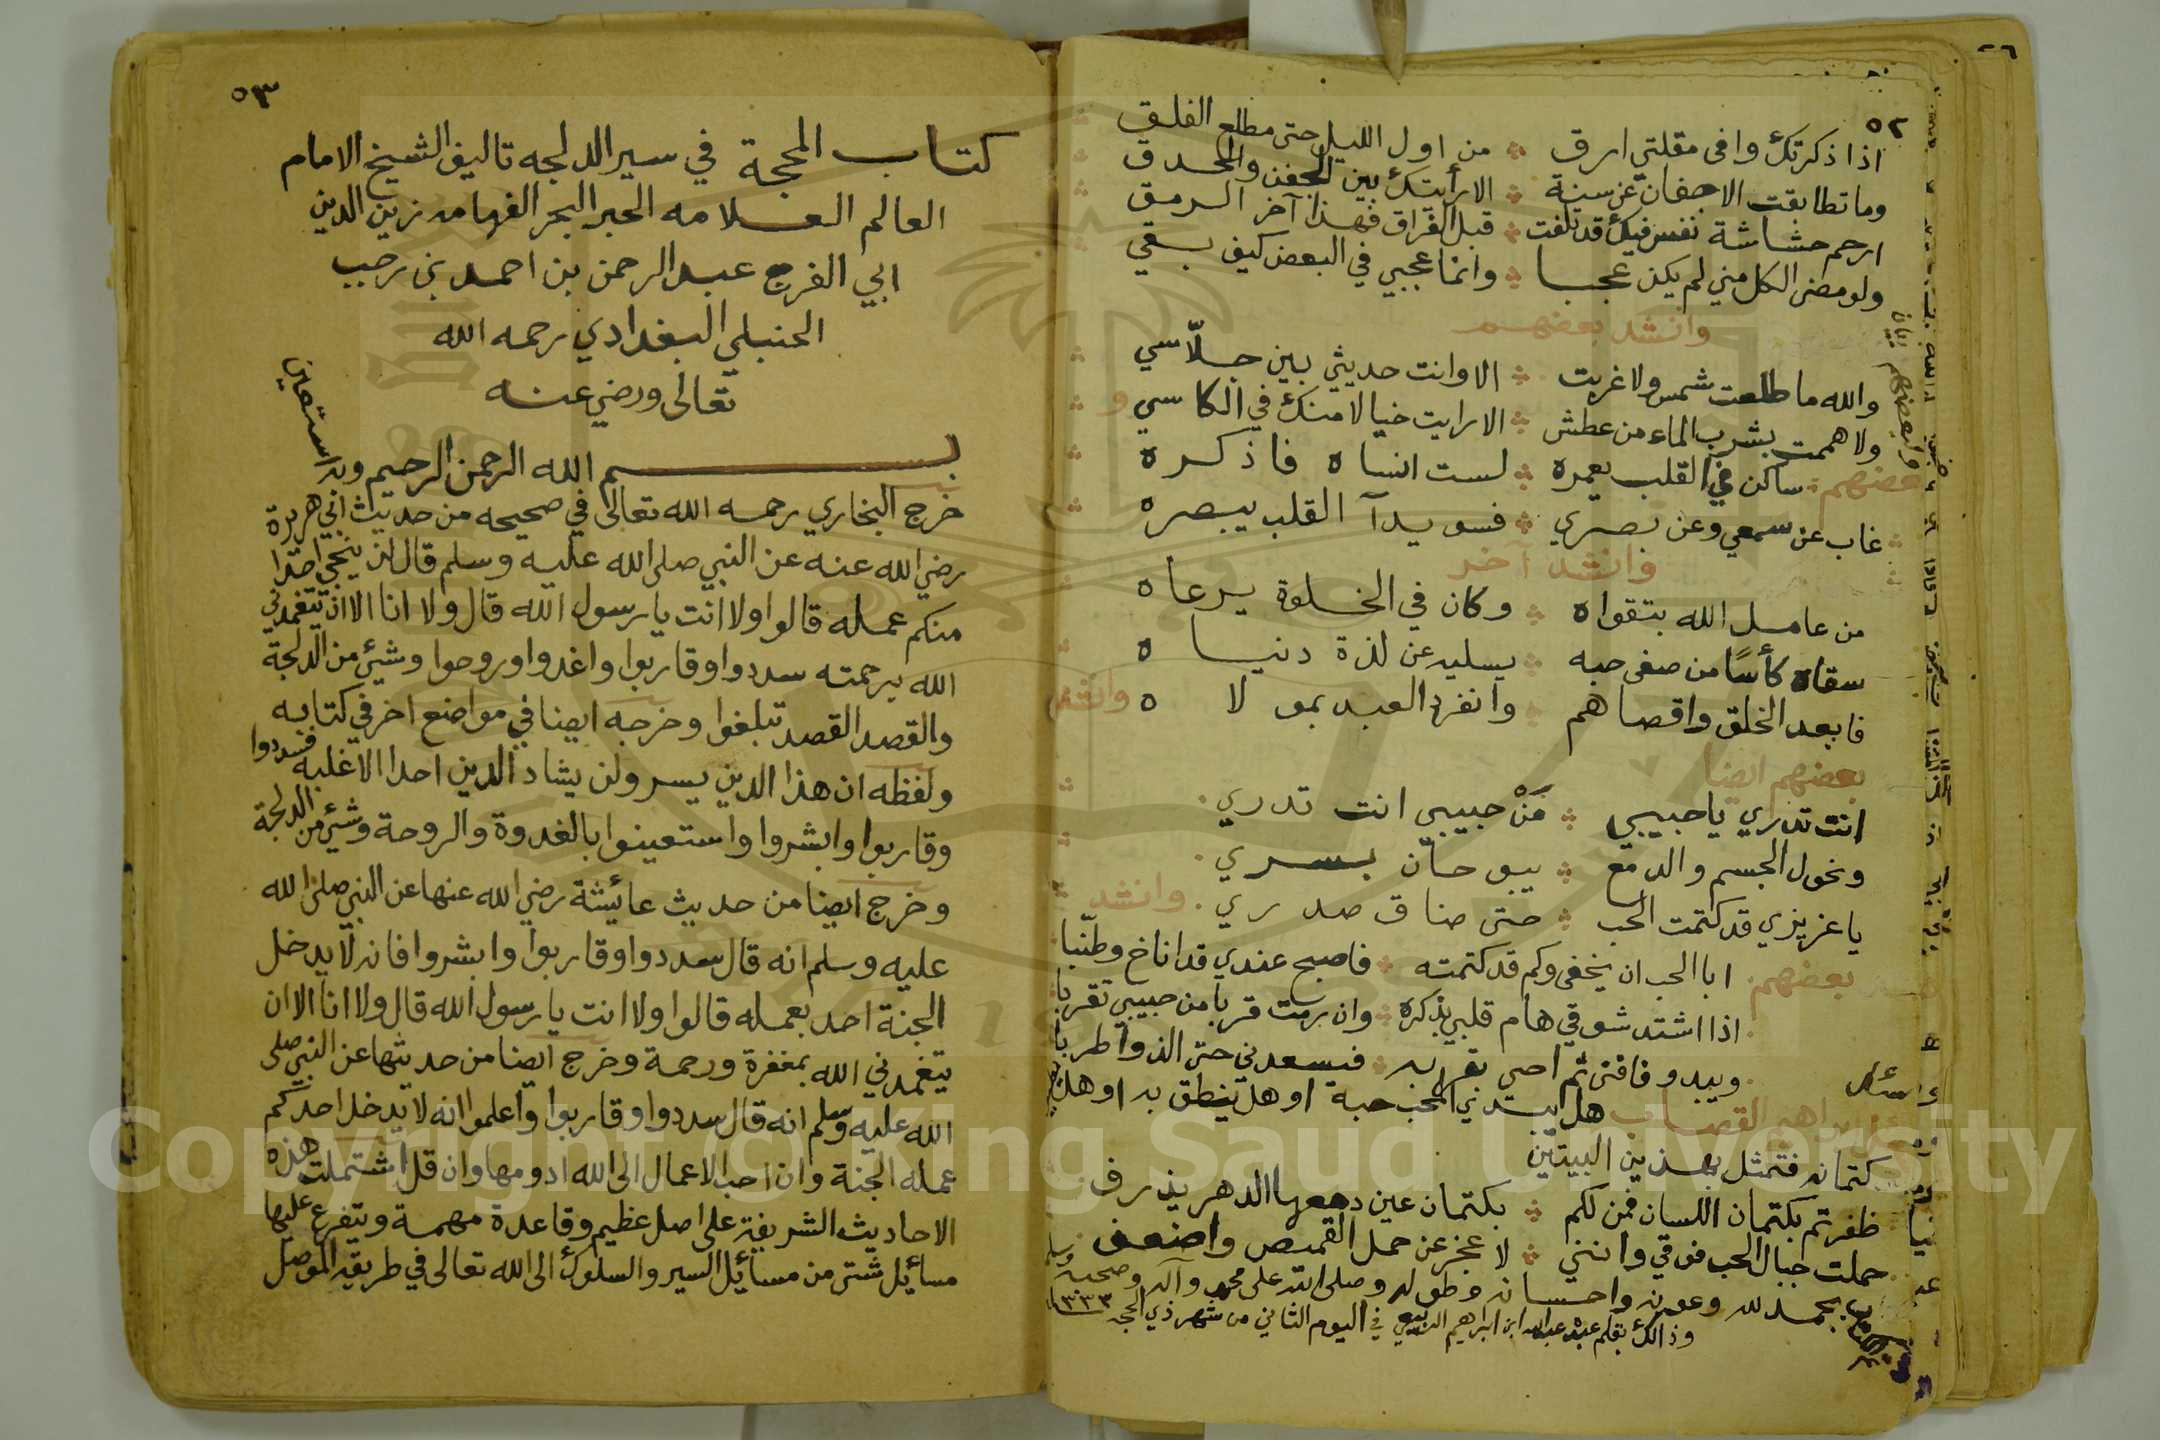 ٥٢
اذا ذكرتك وافى مقلتي ارق من اول الليل حتى مطلع الفلق
وما تطابقت الاجفان عن سنة الا رأيتك بين الجفن والحدق
ارحم حشاشة نفس فيك قد تلفت قبل الفراق فهذا آخر الرمق
ولو مضى الكل مني لم يكن عجبا وانما عجبي في البعض كيف بقي
وانشد بعضهم
والله ما طلعت شمس ولا غربت الا وانت حديثي بين جلّاسي
ولا هممت بشرب الماء من عطش الا رايت خيالا منك في الكاسي و
ساكن في القلب يعمره لست انساه فاذكره
غاب عن سمعي وعن بصري فسويدآ القلب يبصره
وانشد آخر
من عامل الله بتقواه وكان في الخلوة يرعاه
سقاه كأسًا من صفى حبه يسليه عن لذة دنياه
فابعد الخلق واقصاهم وانفرد العبد بمولاه وانشد
بعضهم ايضا
انت تدري يا حبيبي مَنْ حبيبي انت تدري
ونحول الجسم والدمع يبوحان بسري
يا عزيزي قد كتمت الحب حتى ضاق صدري وانشد
بعضهم ابا الحب ان يخفى وكم قد كتمته فاصبح عندي قد اناخ وطنّبا
اذا اشتد شوقي هام قلبي بذكره وان رمت قربا من حبيبي تقربا
ويبدو فافنى ثم احيى بقربه فيسعدني حتى الذ واطربا
وسئل ابراهيم القصاب هل يبدي المحب حبه او هل ينطق به او هل
كتمانه فتمثل بهذين البيتين
ظفرتم بكتمان اللسان فمن لكم بكتمان عين دمعها الدهر يذرف
حملت جبال الحب فوقي وانني لا عجز عن حمل القميص واضعف
بحمد لله وعونه واحسانه وطوله وصلى الله على محمد وآله وصحبه وسلم
وذالك بقلم عبده عبدالله ابن ابراهيم الربيعي في اليوم الثاني من شهر ذي الحجه ١٣٣٣
٥٣
كتاب المحجة في سير الدلجه تاليف الشيخ الامام
العالم العلامه الحبر البحر الفهامه زين الدين
ابي الفرج عبد الرحمن بن احمد بن رجب
الحنبلي البغدادي رحمه الله
تعالى ورضي عنه
بسم الله الرحمن الرحيم وبه استعين
خرج البخاري رحمه الله تعالى في صحيحه من حديث ابي هريرة
رضي الله عنه عن النبي صلى الله عليه وسلم قال لن ينجي احدا
منكم عمله قالوا ولا انت يا رسول الله قال ولا انا الا ان يتغمدني
الله برحمته سددوا وقاربوا واغدوا وروحوا وشيئ من الدلجة
والقصد القصد تبلغوا وخرجه ايضا في مواضع اخر في كتابه
ولفظه ان هذا الدين يسر ولن يشاد الدين احدا الا غلبه فسددوا
وقاربوا وابشروا واستعينوا بالغدوة والروحة وشيئ من الدلجة
وخرج ايضا من حديث عائيشة رضي الله عنها عن النبي صلى الله
عليه وسلم انه قال سددوا وقاربوا وابشروا فانه لا يدخل
الجنة احد بعمله قالوا ولا انت يا رسول الله قال ولا انا الا ان
يتغمدني الله بمغفرة ورحمة وخرج ايضا من حديثها عن النبي صلى
الله عليه وسلم انه قال سددوا وقاربوا واعلموا انه لا يدخل احدكم
عمله الجنة وان احب الاعمال الى الله ادومها وان قل اشتملت هذه
الاحاديث الشريفة على اصل عظيم وقاعدة مهمة ويتفرع عليها
مسائيل شتى من مسائيل السير والسلوك الى الله تعالى في طريقه الموصل
Copyright © King Saud University